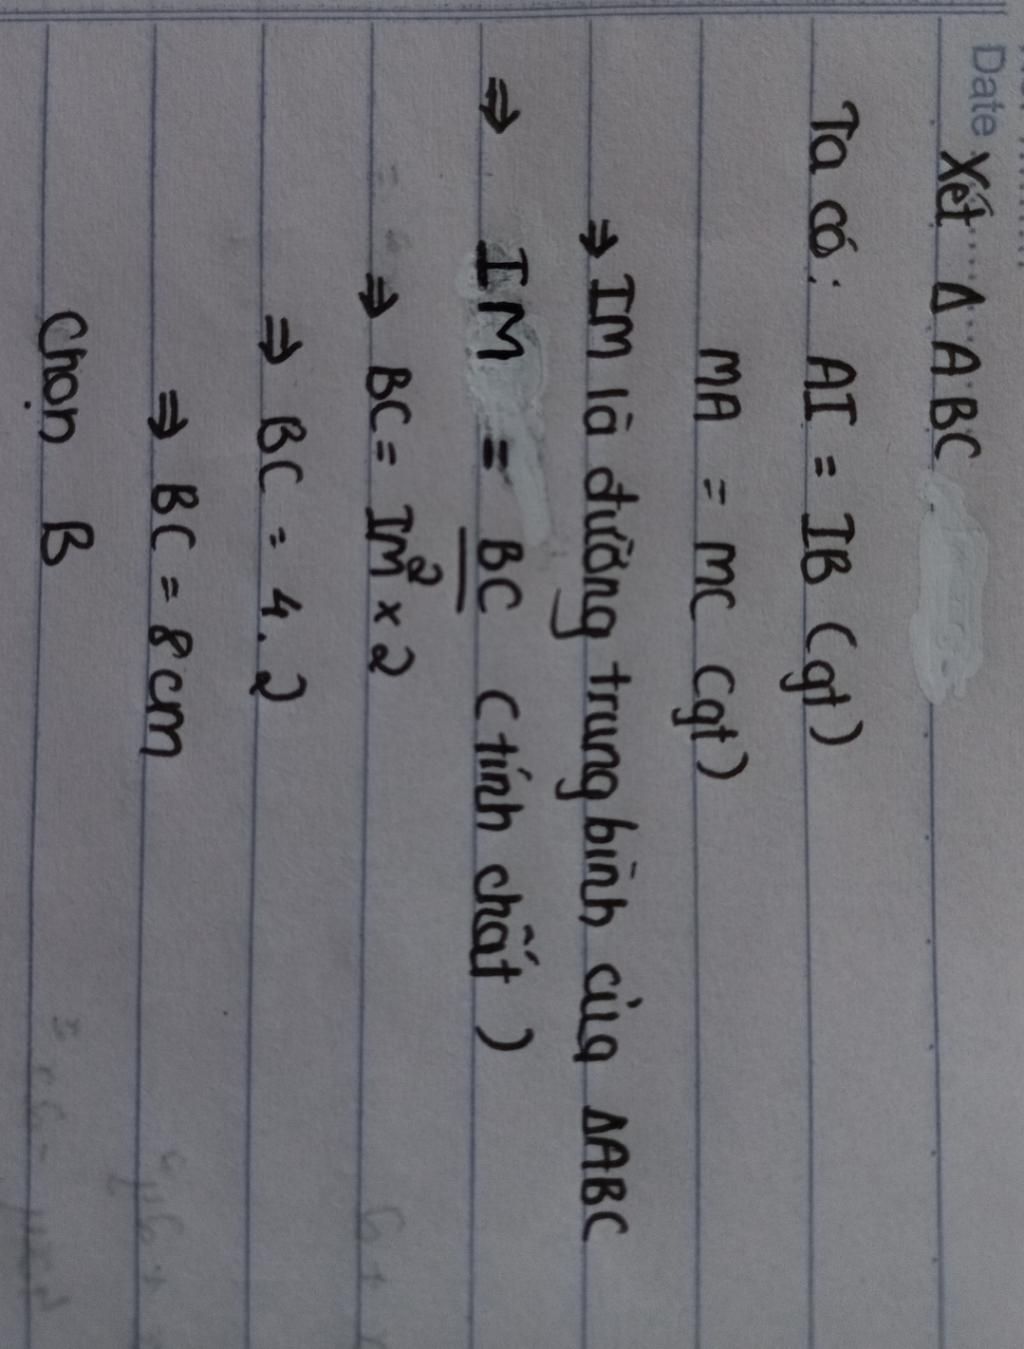 Date
Xét Δ ABC
Ta có: AI = IB (gt)
MA = MC (gt)
⇒ IM là đường trung bình của ΔABC
⇒ IM = BC/2 (tính chất)
⇒ BC = IM × 2
⇒ BC = 4.2
⇒ BC = 8cm
Chọn B